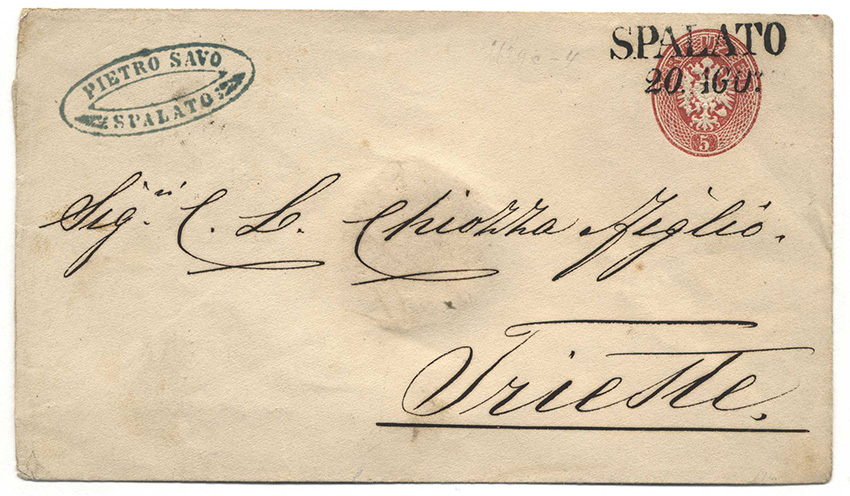 PIETRO SAVO
SPALATO
SPALATO
20. AGO:
5
Sig.ri C. L. Chiozza & figlio.
Trieste.